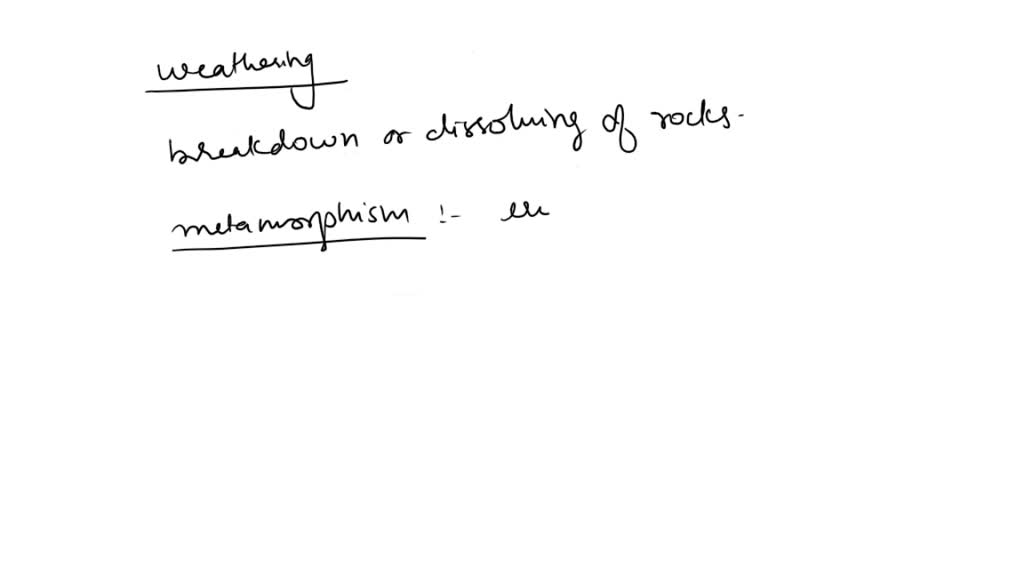 weathering
breakdown or dissolving of rocks.
metamorphism :-